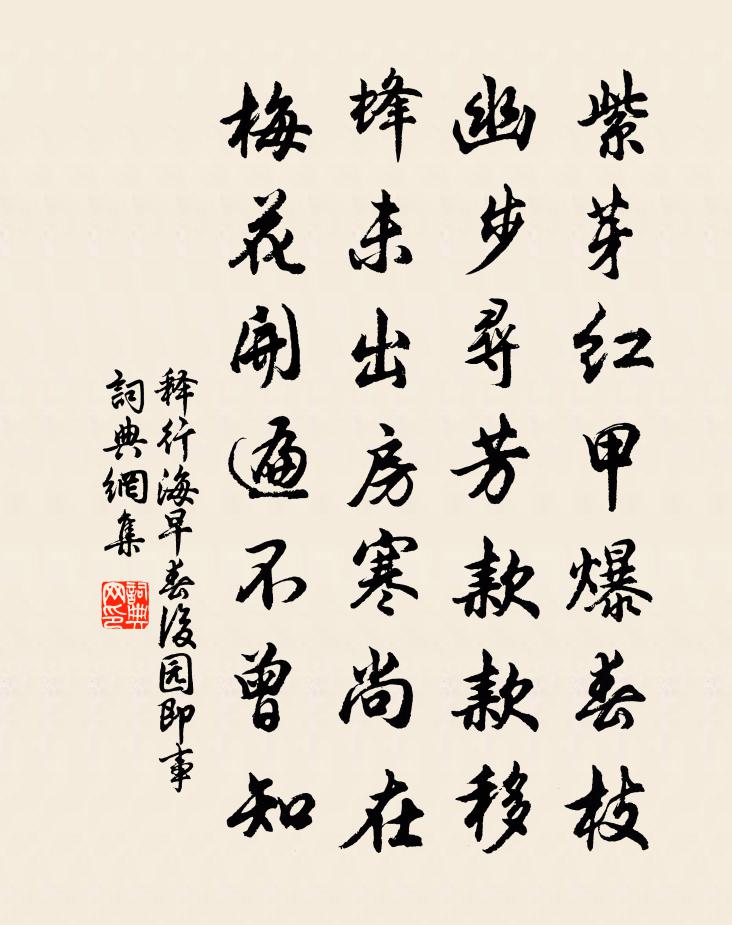 紫芽红甲爆春枝
幽步尋芳款款移
蜂未出房寒尚在
梅花開遍不曾知
释行海早春後园即事
詞典網集
詞典网印